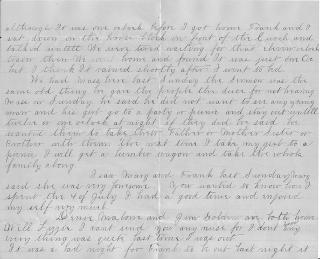 although It was one oclock before I got home Frank and I
sat down on the horse block in front of the Church and
talked untill We were tired waiting for that
when We went home and found It was just one Oc
but I think It rained shortly after I went to bed.
We had Mass here last Sunday the Sermon was the
same old thing he gave the people the for not hearing
Mass on Sunday he said he did not want to see any young
man and his girl go to a party or picnic and stay out untill
twelve or one oclock at night if they did he said he
wanted them to take their Father or Mother Sister or
Brother with them the next time I take my girl to a
picnic I will get a lumber wagon and take the whole
family along.
I saw Mary and Frank last Sunday Mary
said she was very lonesome. You wanted to know how I
spent the 4 of July I had a good time and enjoyed
my self very much.
Malone and Jim are both home
Well Lizzie I cant send you any music for I dont
every thing was quiet last time I was out
It was a bad night for Frank to be out last night it